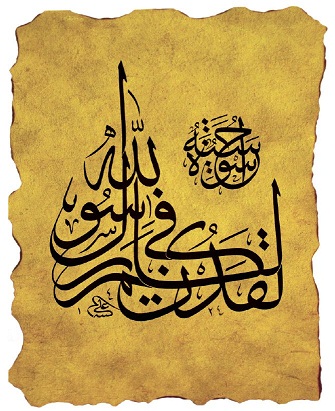 لقد كان لكم في رسول الله
أسوة حسنة